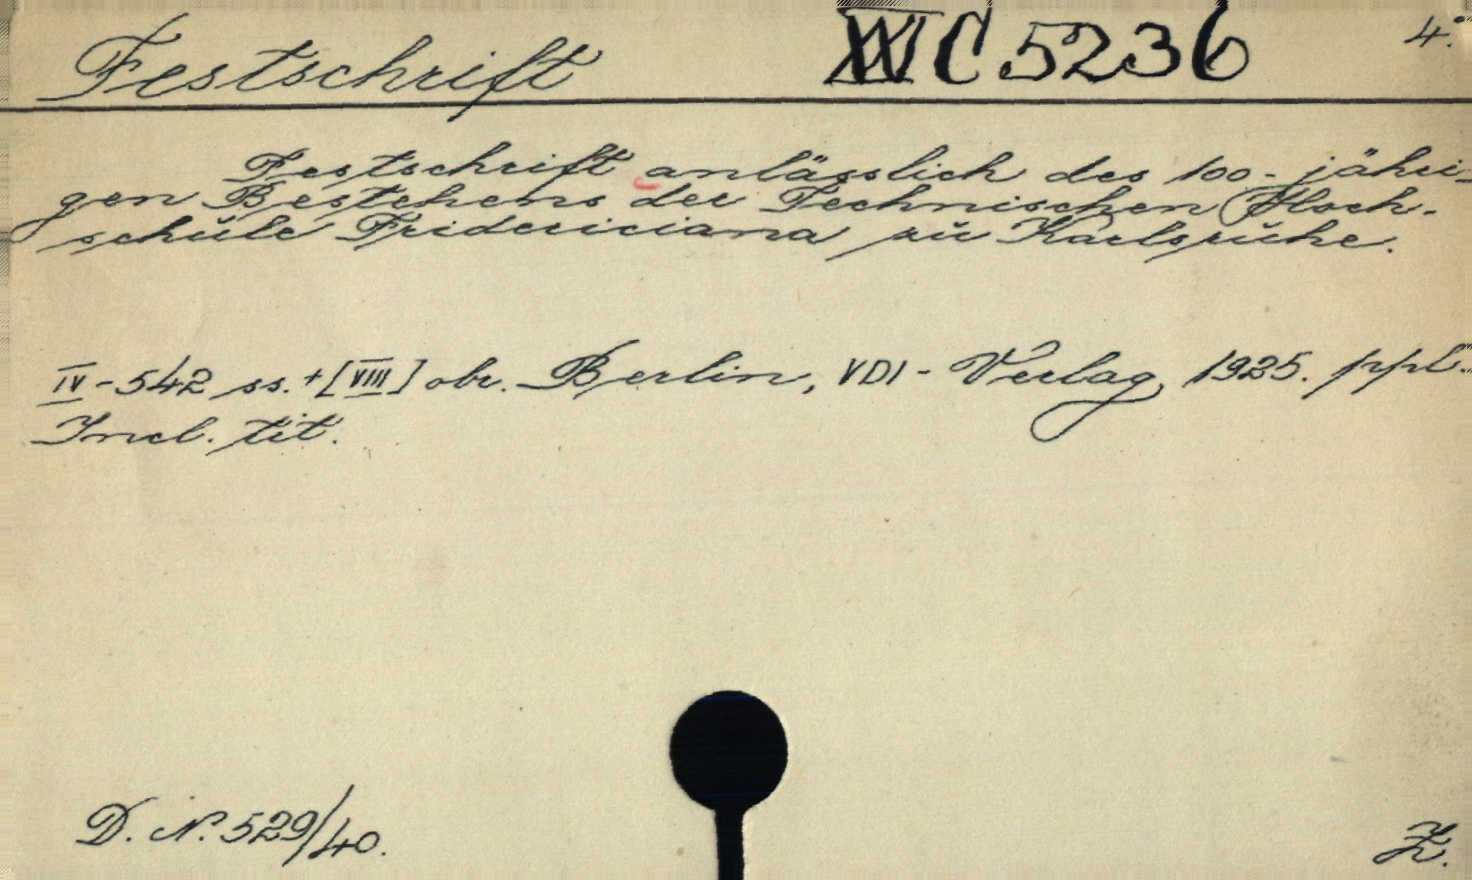 Festschrift XVI C 5236 4°
Festschrift anlässlich des 100-jähri-
gen Bestehens der Technischen Hoch-
schule Fridericiana zu Karlsruhe.
IV-542 ss. + [VIII] obr. Berlin, VDI-Verlag, 1925. ppl.
Incl. tit.
D. N. 529/40.
Ž.